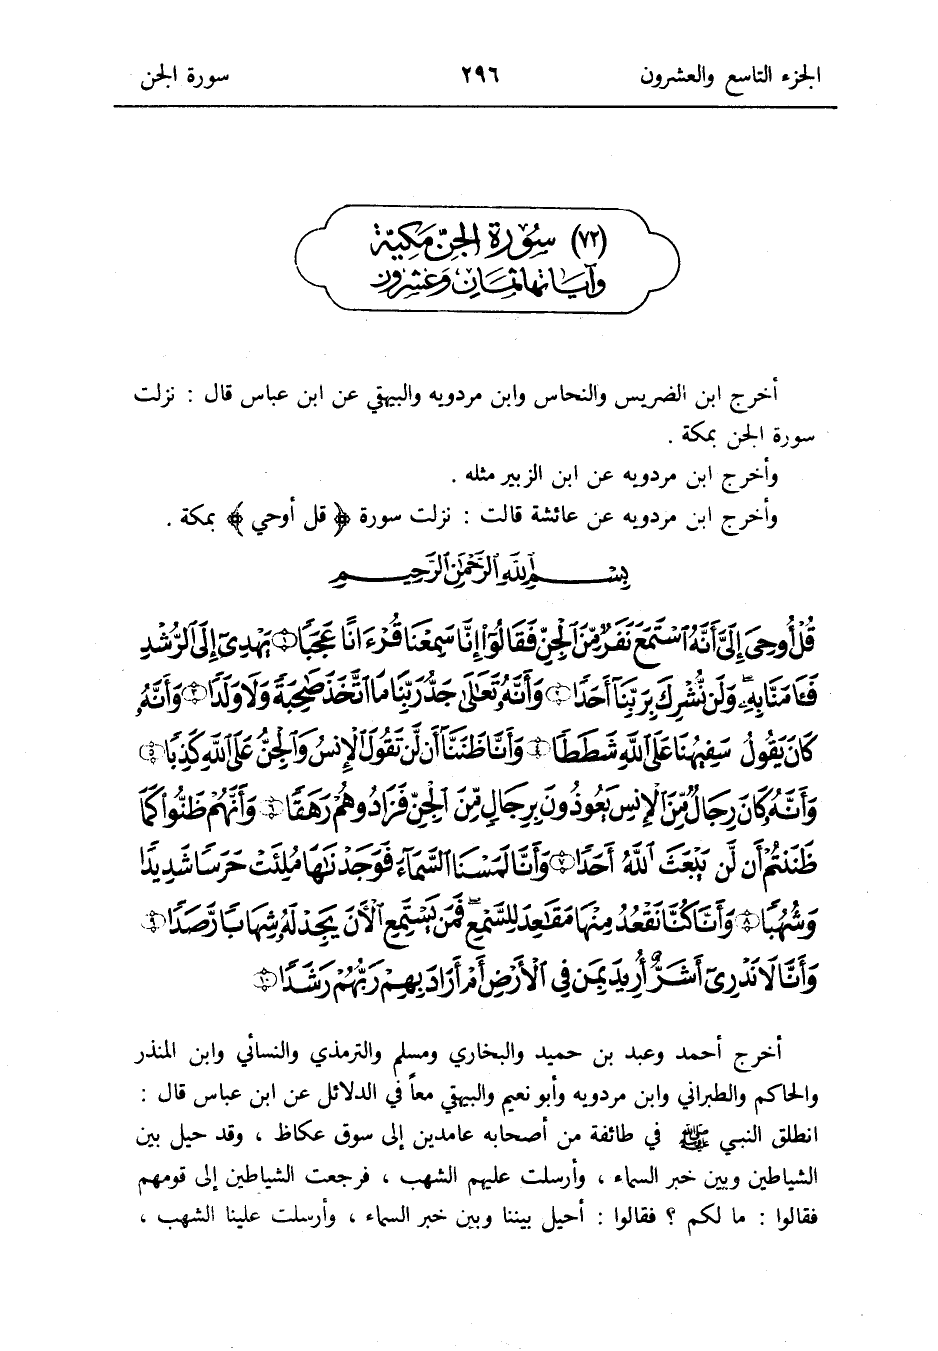 الجزء التاسع والعشرون ٢٩٦ سورة الجن
(٧٢) سورة الجن مكية
وآياتها ثمان وعشرون
أخرج ابن الضريس والنحاس وابن مردويه والبيهقي عن ابن عباس قال : نزلت
سورة الجن بمكة .
وأخرج ابن مردويه عن ابن الزبير مثله .
وأخرج ابن مردويه عن عائشة قالت : نزلت سورة ﴿ قل أوحي ﴾ بمكة .
بِسْمِ اللَّهِ الرَّحْمَٰنِ الرَّحِيمِ
قُلْ أُوحِيَ إِلَيَّ أَنَّهُ ٱسْتَمَعَ نَفَرٌ مِّنَ ٱلْجِنِّ فَقَالُوٓا۟ إِنَّا سَمِعْنَا قُرْءَانًا عَجَبًا ١ يَهْدِىٓ إِلَى ٱلرُّشْدِ
فَـَٔامَنَّا بِهِۦ وَلَن نُّشْرِكَ بِرَبِّنَآ أَحَدًا ٢ وَأَنَّهُۥ تَعَٰلَىٰ جَدُّ رَبِّنَا مَا ٱتَّخَذَ صَٰحِبَةً وَلَا وَلَدًا ٣ وَأَنَّهُۥ
كَانَ يَقُولُ سَفِيهُنَا عَلَى ٱللَّهِ شَطَطًا ٤ وَأَنَّا ظَنَنَّآ أَن لَّن تَقُولَ ٱلْإِنسُ وَٱلْجِنُّ عَلَى ٱللَّهِ كَذِبًا ٥
وَأَنَّهُۥ كَانَ رِجَالٌ مِّنَ ٱلْإِنسِ يَعُوذُونَ بِرِجَالٍ مِّنَ ٱلْجِنِّ فَزَادُوهُمْ رَهَقًا ٦ وَأَنَّهُمْ ظَنُّوا۟ كَمَا
ظَنَنتُمْ أَن لَّن يَبْعَثَ ٱللَّهُ أَحَدًا ٧ وَأَنَّا لَمَسْنَا ٱلسَّمَآءَ فَوَجَدْنَٰهَا مُلِئَتْ حَرَسًا شَدِيدًا
وَشُهُبًا ٨ وَأَنَّا كُنَّا نَقْعُدُ مِنْهَا مَقَٰعِدَ لِلسَّمْعِ فَمَن يَسْتَمِعِ ٱلْءَانَ يَجِدْ لَهُۥ شِهَابًا رَّصَدًا ٩
وَأَنَّا لَا نَدْرِىٓ أَشَرٌّ أُرِيدَ بِمَن فِى ٱلْأَرْضِ أَمْ أَرَادَ بِهِمْ رَبُّهُمْ رَشَدًا ١٠
أخرج أحمد وعبد بن حميد والبخاري ومسلم والترمذي والنسائي وابن المنذر
والحاكم والطبراني وابن مردويه وأبو نعيم والبيهقي معاً في الدلائل عن ابن عباس قال :
انطلق النبي ﷺ في طائفة من أصحابه عامدين إلى سوق عكاظ ، وقد حيل بين
الشياطين وبين خبر السماء ، وأرسلت عليهم الشهب ، فرجعت الشياطين إلى قومهم
فقالوا : ما لكم ؟ فقالوا : أحيل بيننا وبين خبر السماء ، وأرسلت علينا الشهب ،